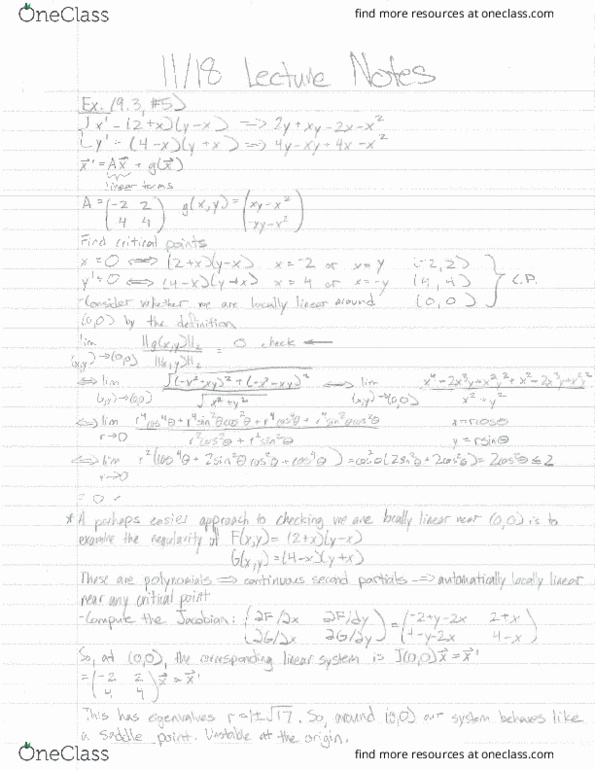 OneClass
find more resources at oneclass.com
11/18 Lecture Notes
Ex. (9.3, #5)
{ x' = (2+x)(y-x) => 2y+xy-2x-x²
{ y' = (4-x)(y+x) => 4y-xy+4x-x²
x⃗' = Ax⃗ + g(x⃗)
linear terms
A = (-2 2 / 4 4) g(x,y) = (xy-x² / -xy-x²)
Find critical points
x'=0 <=> (2+x)(y-x) x=-2 or x=y (-2,2)
y'=0 <=> (4-x)(y+x) x=4 or x=-y (4,4) } C.P.
-Consider whether we are locally linear around (0,0)
(0,0) by the definition
lim (x,y)→(0,0) ||g(x,y)||₂ / ||(x,y)||₂ = 0 check ←
<=> lim (x,y)→(0,0) √((-x²+xy)²+(-x²-xy)²) / √(x²+y²) <=> lim (x,y)→(0,0) / x²+y²
<=> lim r→0 r⁴cos⁴θ+r⁴sin²θcos²θ+r⁴cos⁴θ+r⁴sin²θcos²θ / r²cos²θ+r²sin²θ x=rcosθ
y=rsinθ
<=> lim r→0 r²(cos⁴θ+2sin²θcos²θ+cos⁴θ) = cos²θ(2sin²θ+2cos²θ) = 2cos²θ ≤ 2
= 0
* A perhaps easier approach to checking we are locally linear near (0,0) is to
examine the regularity of F(x,y) = (2+x)(y-x)
G(x,y) = (4-x)(y+x)
These are polynomials => continuous second partials => automatically locally linear
near any critical point
-Compute the Jacobian: (∂F/∂x ∂F/∂y / ∂G/∂x ∂G/∂y) = (-2+y-2x 2+x / 4-y-2x 4-x)
So, at (0,0), the corresponding linear system is J(0,0)x⃗ = x⃗'
= (-2 2 / 4 4) x⃗ = x⃗'
This has eigenvalues r=1±√17. So, around (0,0) our system behaves like
a saddle point. Unstable at the origin.
OneClass
find more resources at oneclass.com